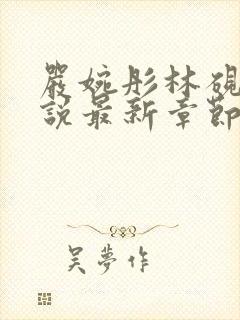 嚴婉彤林硯
說最新章節
吳夢作